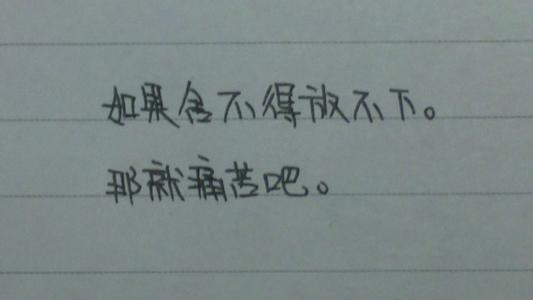 如果舍不得放不下。
那就痛苦吧。